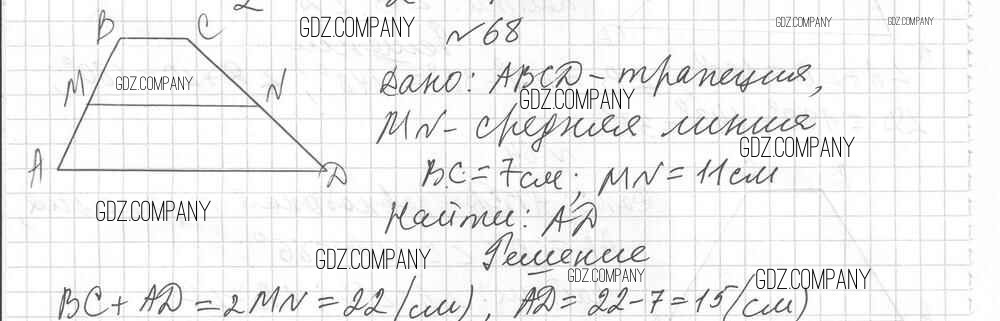 №68
B C
Дано: ABCD - трапеция,
M N
MN - средняя линия
BC = 7 см; MN = 11 см
A D
Найти: AD
Решение
BC + AD = 2MN = 22 (см), AD = 22 - 7 = 15 (см)
GDZ.COMPANY
GDZ.COMPANY
GDZ.COMPANY
GDZ.COMPANY
GDZ.COMPANY
GDZ.COMPANY
GDZ.COMPANY
GDZ.COMPANY
GDZ.COMPANY
GDZ.COMPANY